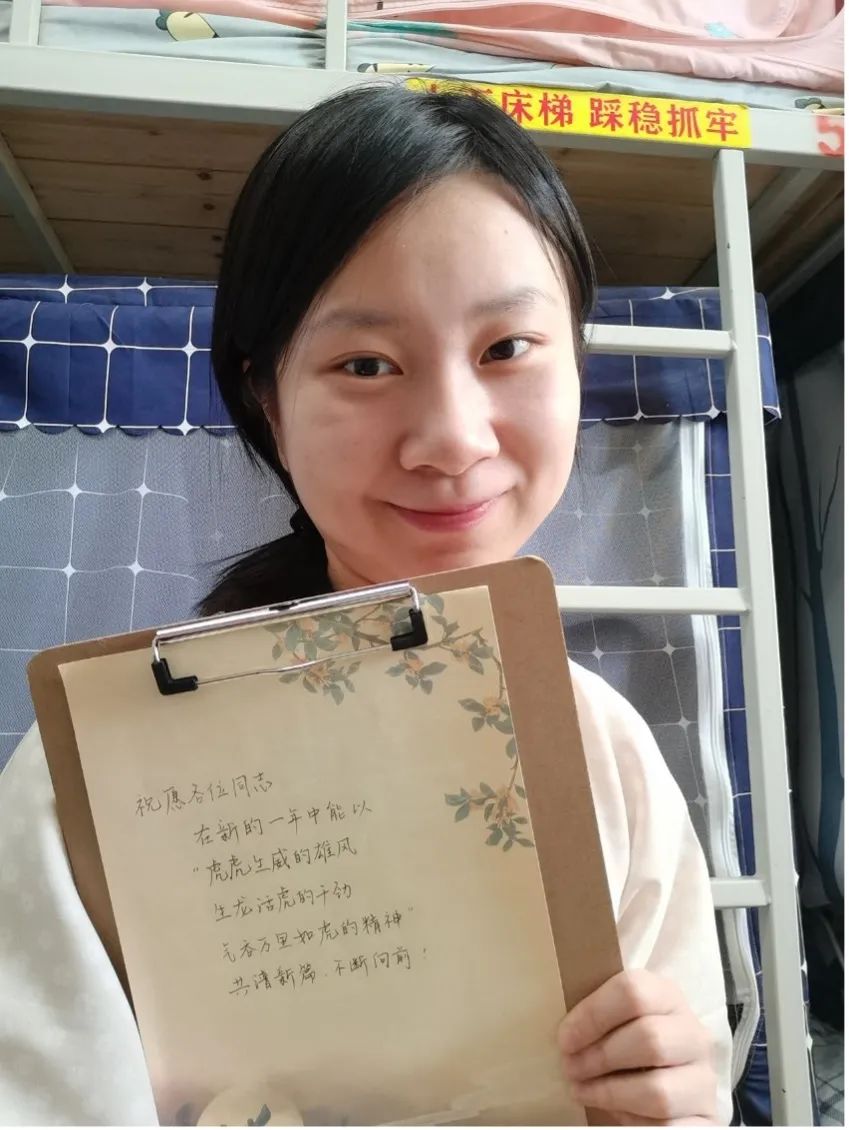 床梯 踩稳抓牢
5
祝愿各位同志
在新的一年中能以
“虎虎生威的雄风
生龙活虎的干劲
气吞万里如虎的精神”
共谱新篇、不断向前！